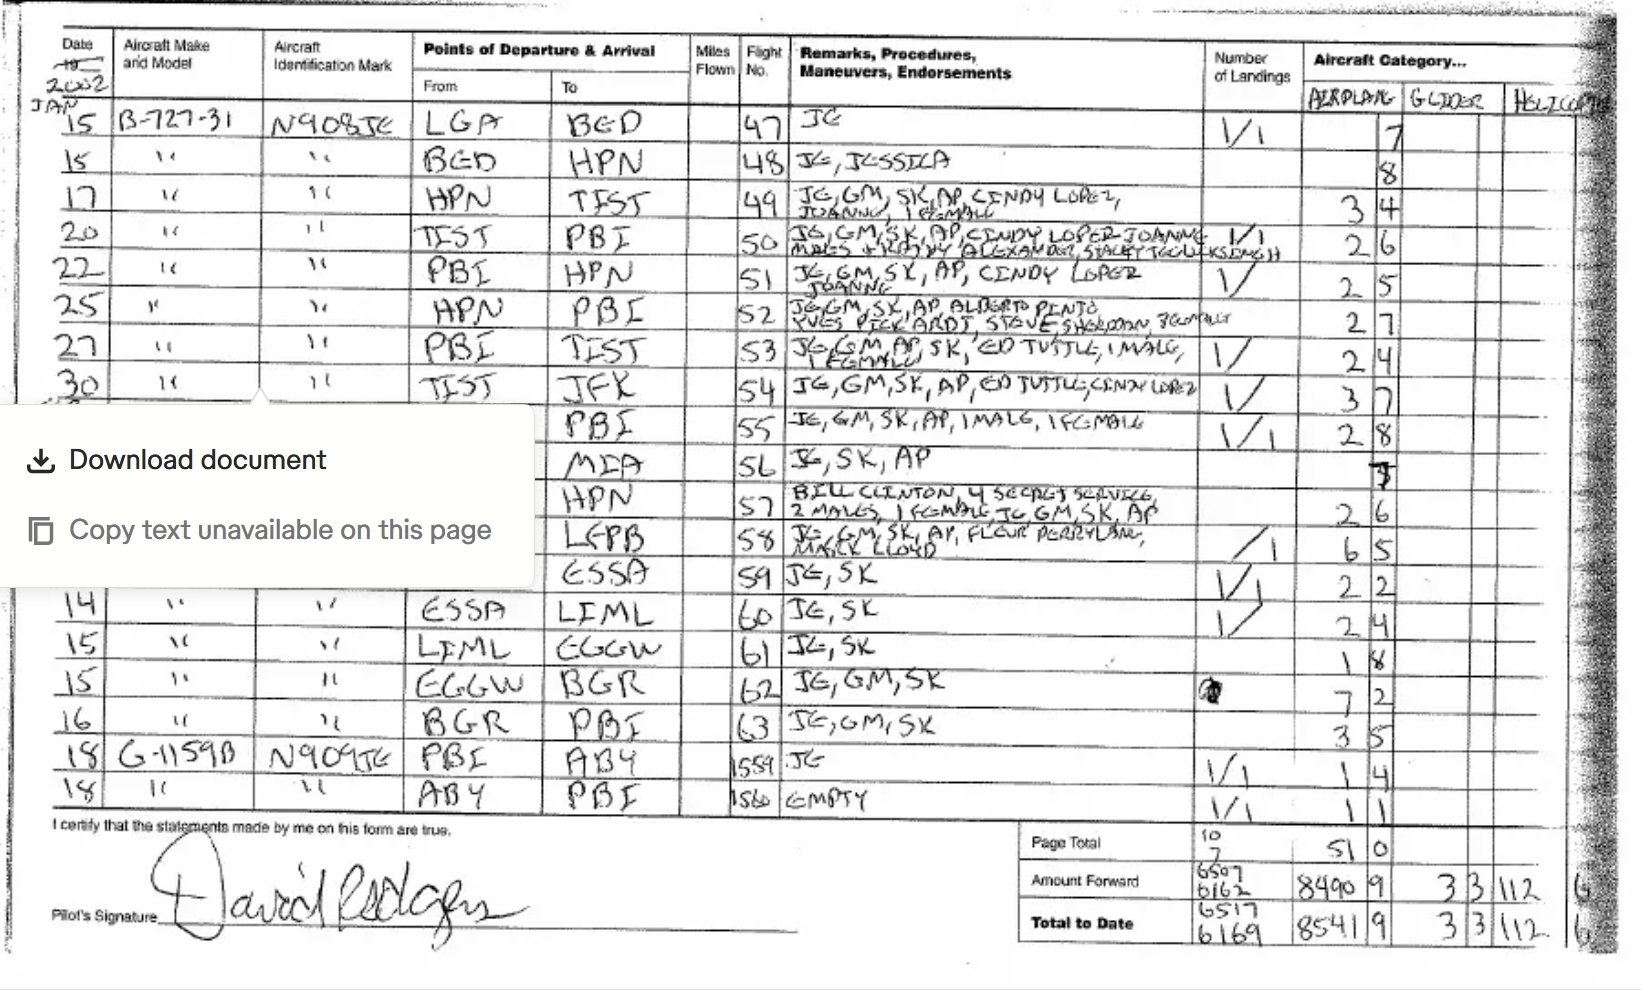 Date Aircraft Make Aircraft Points of Departure & Arrival Miles Flight Remarks, Procedures, Number Aircraft Category...
19 and Model Identification Mark Flown No. Maneuvers, Endorsements of Landings
2002 From To AIRPLANE GLIDER HELICOPTER
JAN
15 B-727-31 N908JE LGA BED 47 JE 1/1 7
15 " " BED HPN 48 JE, JESSICA 8
17 " " HPN TIST 49 JE, GM, SK, AP, CINDY LOPEZ, 3 4
JOANNE, 1 FEMALE
20 " " TIST PBI 50 JE, GM, SK, AP, CINDY LOPEZ JOANNE 1/1 2 6
ALEXANDER,
22 " " PBI HPN 51 JE, GM, SK, AP, CINDY LOPEZ 1/ 2 5
JOANNE
25 " " HPN PBI 52 JE, GM, SK, AP, ALBERTO PINTO 2 7
27 " " PBI TIST 53 JE, GM, AP, SK, ED TUTTLE, 1 MALE, 1/ 2 4
1 FEMALE
30 " " TIST JFK 54 JE, GM, SK, AP, ED TUTTLE, CINDY LOPEZ 1/ 3 7
PBI 55 JE, GM, SK, AP, 1 MALE, 1 FEMALE 1/1 2 8
Download document
MIA 56 JE, SK, AP
HPN 57 BILL CLINTON, 4 SECRET SERVICE, 2 6
2 MALES, 1 FEMALE, JE, GM, SK, AP
Copy text unavailable on this page
LFPB 58 JE, GM, SK, AP, FLEUR PERRYLANG, /1 6 5
MARK LLOYD
ESSA 59 JE, SK 1/1 2 2
14 " " ESSA LIML 60 JE, SK 1/ 2 4
15 " " LIML EGGW 61 JE, SK 1 8
15 " " EGGW BGR 62 JE, GM, SK 7 2
16 " " BGR PBI 63 JE, GM, SK 3 5
18 G-1159B N909JE PBI ABY 1559 JE 1/1 1 4
18 " " ABY PBI 1560 EMPTY 1/1 1 1
I certify that the statements made by me on this form are true.
Page Total 10 51 0
7
Amount Forward 6507 8490 9 3 3 112 6
6162
Pilot's Signature David Rodgers
Total to Date 6517 8541 9 3 3 112 6
6169